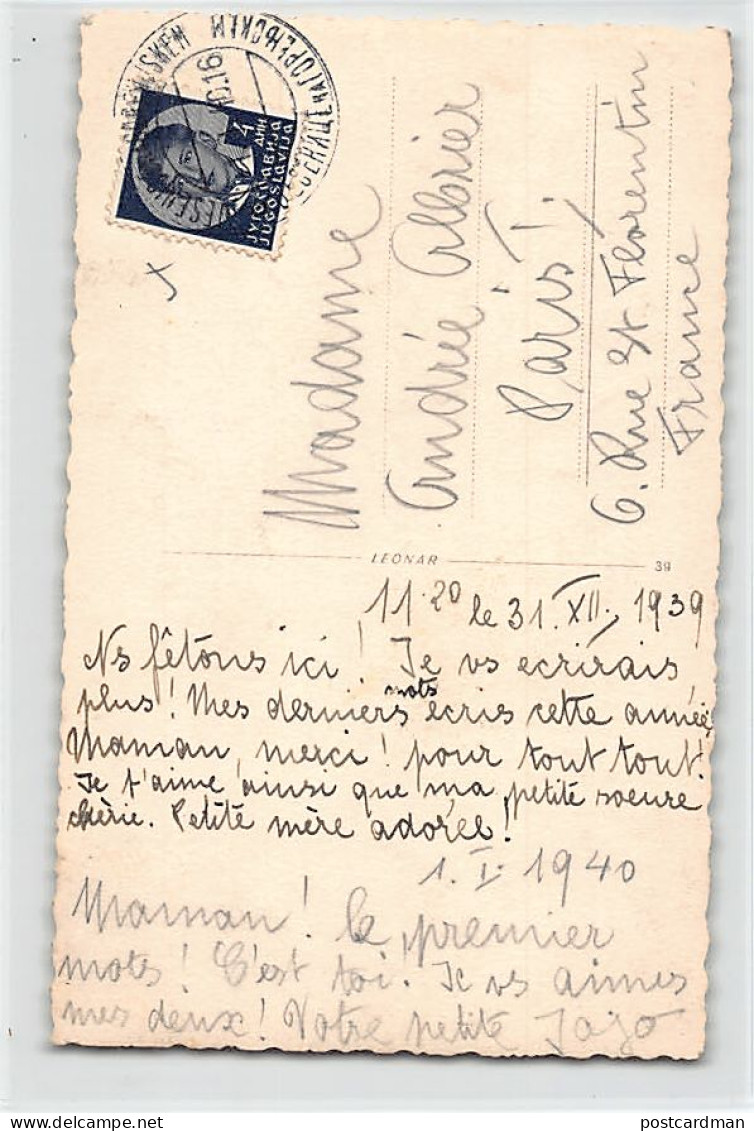 4
ДИН
ЈУГОСЛАВИЈА
JUGOSLAVIJA
Madame
Andrée Albrier
Paris I,
6. Rue St Florentin
France
LEONAR
39
11.20 le 31. XII, 1939
Ns fêtons ici! Je vs ecrirais
plus! Mes derniers mots ecris cette année,
Maman, merci! pour tout tout!
Je t'aime ainsi que ma petite soeure
chérie. Petite mère adorée!
1. I. 1940
Maman! le premier
mots! C'est toi! Je vs aimes
mes deux! Votre petite
postcardman